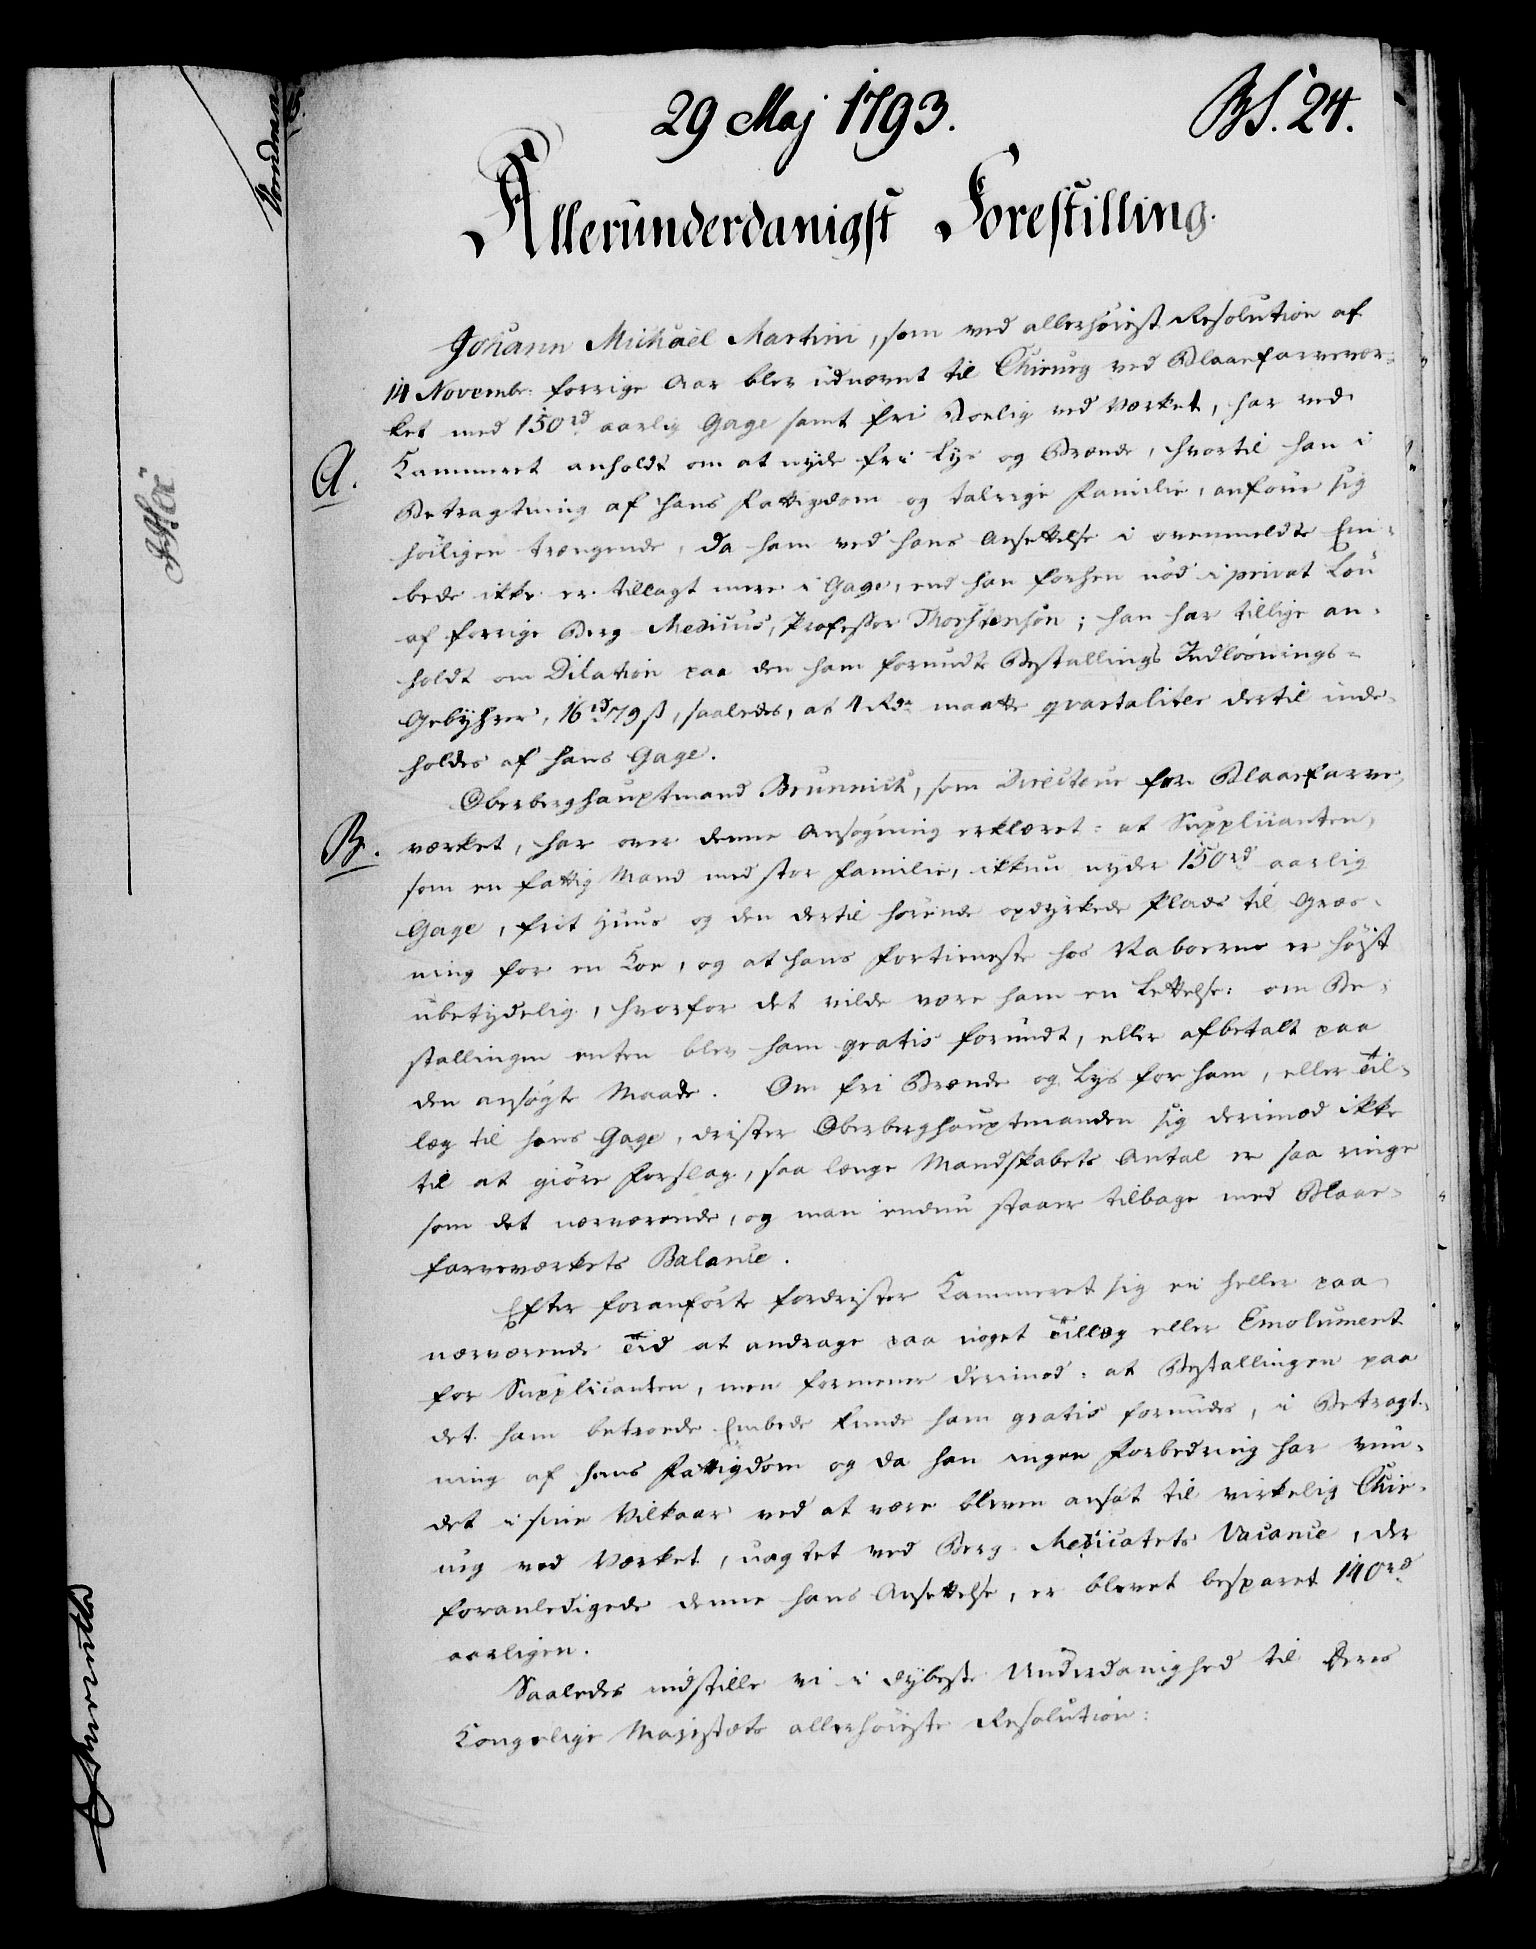 29 Maj 1793.
BS. 24.
Allerunderdanigst Forestilling.
Johann Michael Martini, som ved allerhöiest Resolution af
14 Novembr. forrige Aar blev udnævnt til Chirurg ved Blaafarvevær-
ket med 150 rd aarlig Gage samt fri Boelig ved Værket, har ved
A.
Kammeret anholdt om at nyde fri Lys og Brænde, hvortil han i
Betragtning af hans Fattigdom og talrige Familie, anförer sig
höiligen trængende, da ham ved hans Ansættelse i ovenmeldte Em-
bede ikke er tillagt mere i Gage, end han forhen nöd i privat Lön
af forrige Berg-Medicus, Professor Thorstensön; han har tillige an-
holdt om Dilation paa den ham forundte Bestallings Indlösnings-
Gebyhrer, 16 rd 79 ß, saaledes, at 4 Rdr maatte qvartaliter dertil inde-
holdes af hans Gage.
Oberberghauptmand Brunnich, som Directeur for Blaafarve-
B.
værket, har over denne Ansøgning erklæret: at Supplicanten,
som en fattig Mand med stor Familie, ikkun nyder 150 rd aarlig
Gage, frit Huus og den dertil hörende opdyrkede Plads til Græs-
ning for en Koe, og at hans Fortieneste hos Naboerne er höist
ubetydelig, hvorfor det vilde være ham en Lettelse: om Be-
stallingen enten blev ham gratis forundt, eller afbetalt paa
den ansøgte Maade. Om fri Brænde og Lys for ham, eller Til-
læg til hans Gage, drister Oberberghauptmanden sig derimod ikke
til at giöre Forslag, saa længe Mandskabets Antal er saa ringe
som det nærværende, og man endnu staaer tilbage med Blaae-
farveværkets Balance.
Efter foranförte fordrister Kammeret sig ei heller paa
nærværende Tid at andrage paa noget Tillæg eller Emolument
for Supplicanten, men formener derimod: at Bestallingen paa
det ham betroede Embede kunde ham gratis forundes, i Betragt-
ning af hans Fattigdom og da han ingen Forbedring har vun-
det i sine Vilkaar ved at være bleven ansat til virkelig Chir-
urg ved Værket, uagtet ved Berg-Medicatets Vacance, der
foranledigede denne hans Ansættelse, er blevet besparet 140 rd
aarligen.
Saaledes indstille vi i dybeste Underdanighed til Deres
Kongelige Majestæts allerhöieste Resolution: